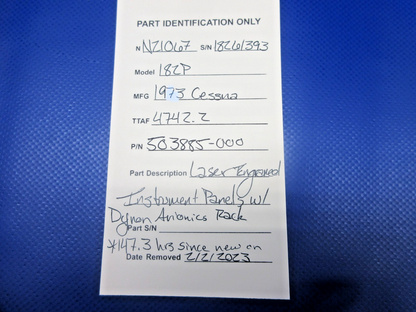 PART IDENTIFICATION ONLY
N N21067 S/N 18261393
Model 182P
MFG 1973 Cessna
TTAF 4742.2
P/N 503885-000
Part Description Laser Engraved
Instrument Panels w/
Dynon Avionics Rack
Part S/N
*147.3 hrs since new on
Date Removed 2/2/2023